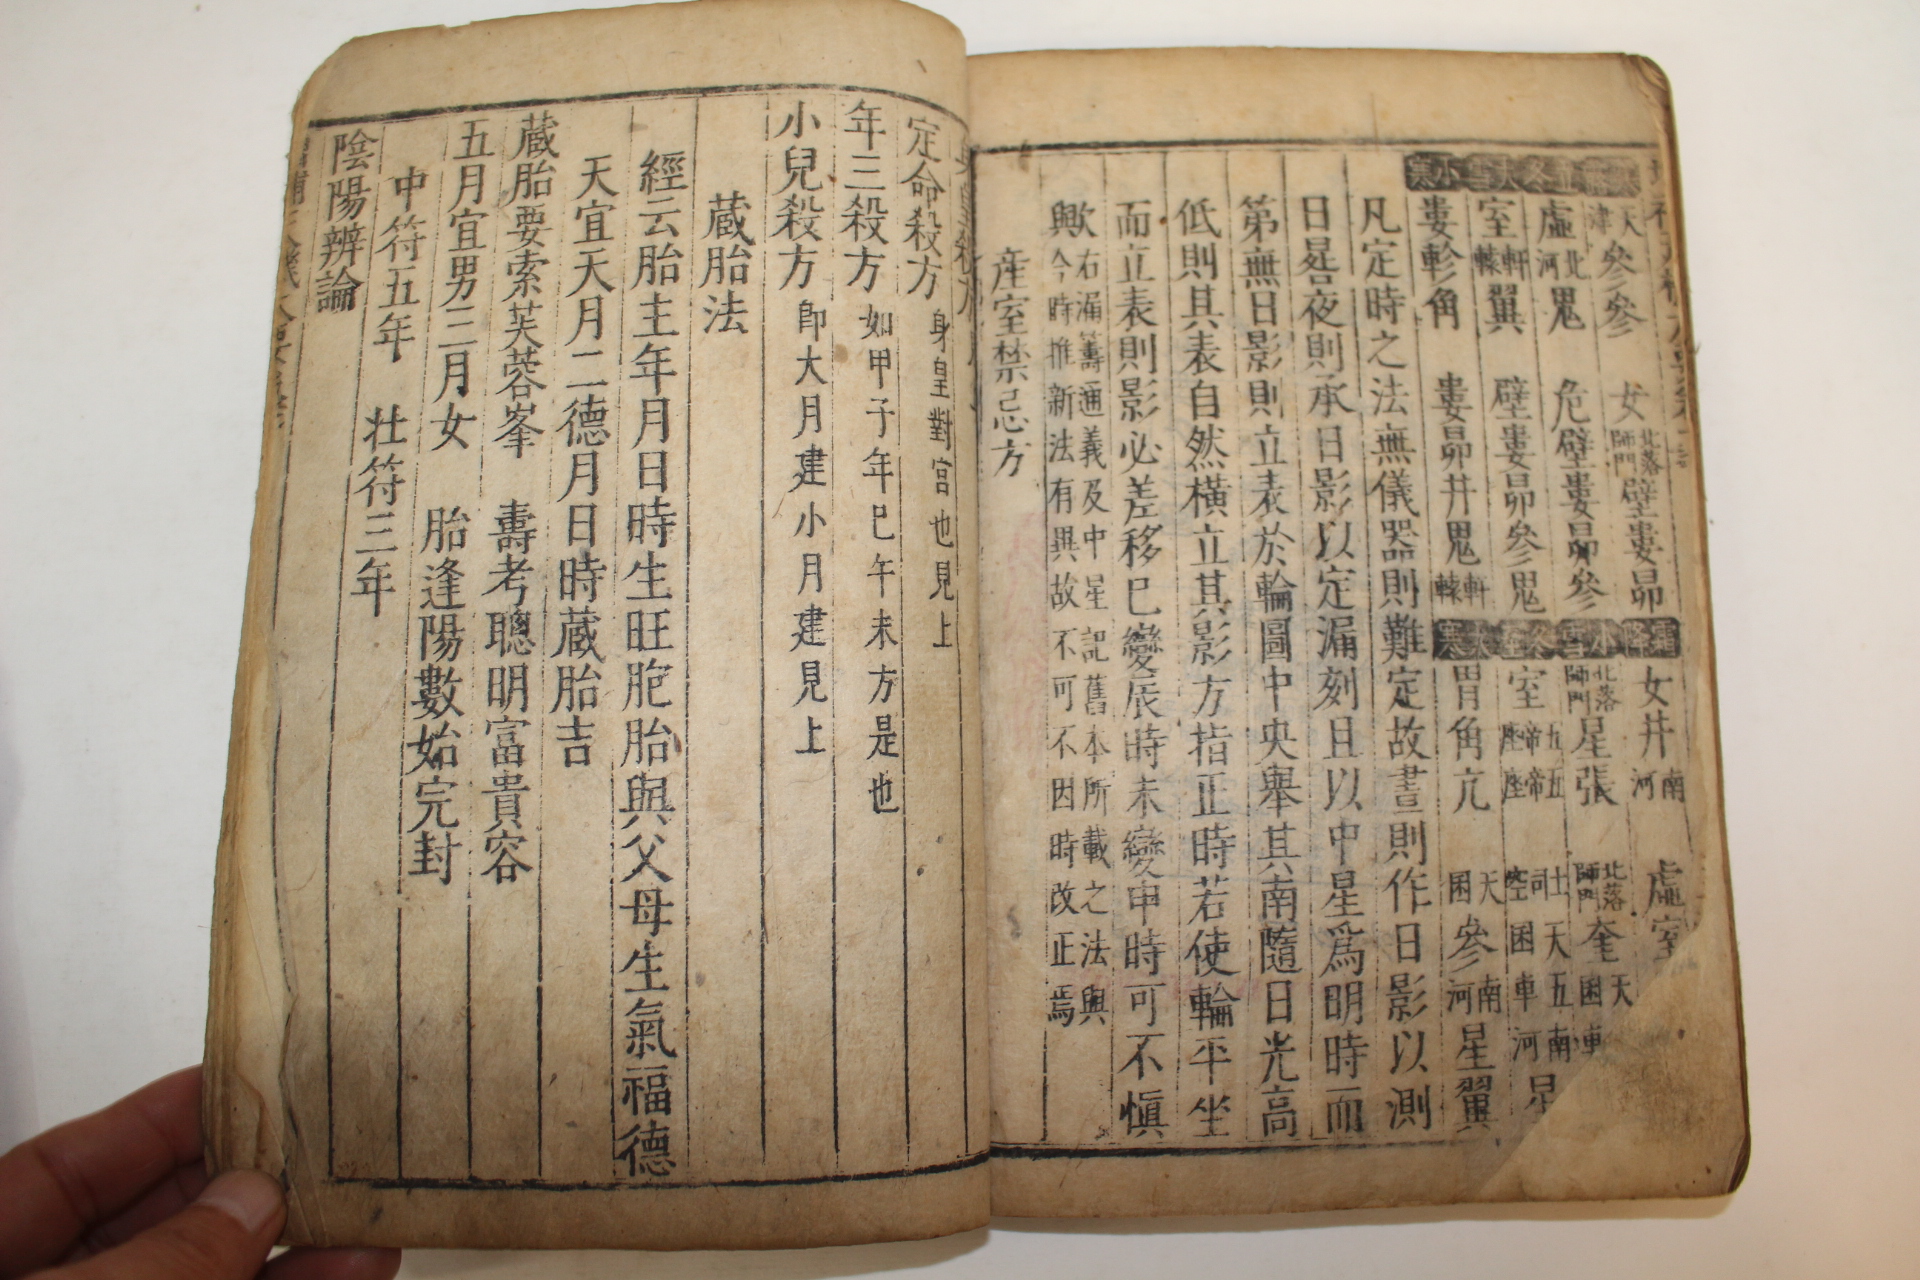 天津參參 女北落師門壁婁昴
女井南河 虛室
虛北河鬼 危壁婁昴參
北落師門星張 北落師門奎天囷車
室軒轅翼 壁婁昴參鬼
室五帝座五帝座 土司空天囷五車南河星
婁軫角 婁昴井鬼軒轅
胃角亢 天囷參南河星翼
凡定時之法無儀器則難定故晝則作日影以測
日晷夜則承日影以定漏刻且以中星爲明時而
第無日影則立表於輪圖中央舉其南隨日光高
低則其表自然橫立其影方指正時若使輪平坐
而立表則影必差移巳變辰時未變申時可不愼
歟右漏籌通義及中星記舊本所載之法與
今時推新法有異故不可不因時改正焉
産室禁忌方
定命殺方身皇對宮也見上
年三殺方如甲子年巳午未方是也
小兒殺方卽大月建小月建見上
蔵胎法
經云胎主年月日時生旺胞胎與父母生氣福德
天宜天月二德月日時蔵胎吉
蔵胎要索芙蓉峯 壽考聰明富貴容
五月宜男三月女 胎逢陽數始完封
中符五年 壮符三年
陰陽辨論